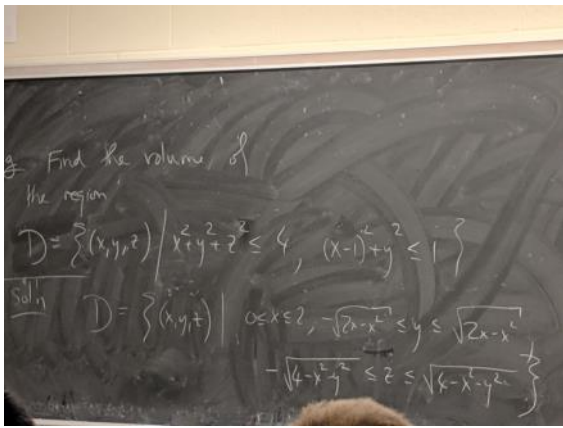 eg Find the volume of
the region
D = {(x,y,z) | x²+y²+z² ≤ 4, (x-1)²+y² ≤ 1}
Sol'n D = {(x,y,z) | 0≤x≤2, -√(2x-x²) ≤ y ≤ √(2x-x²)
-√(4-x²-y²) ≤ z ≤ √(4-x²-y²)}